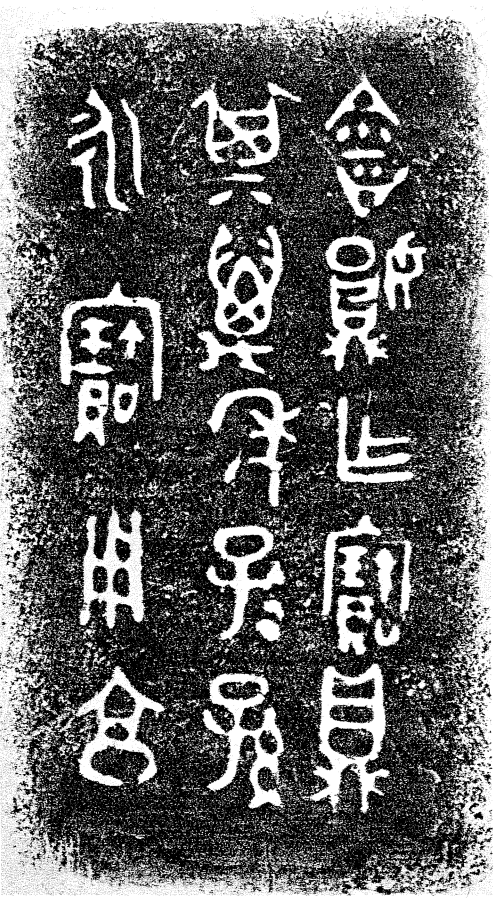 會妘作寶鼎
其萬年子₌孫
永寶用享